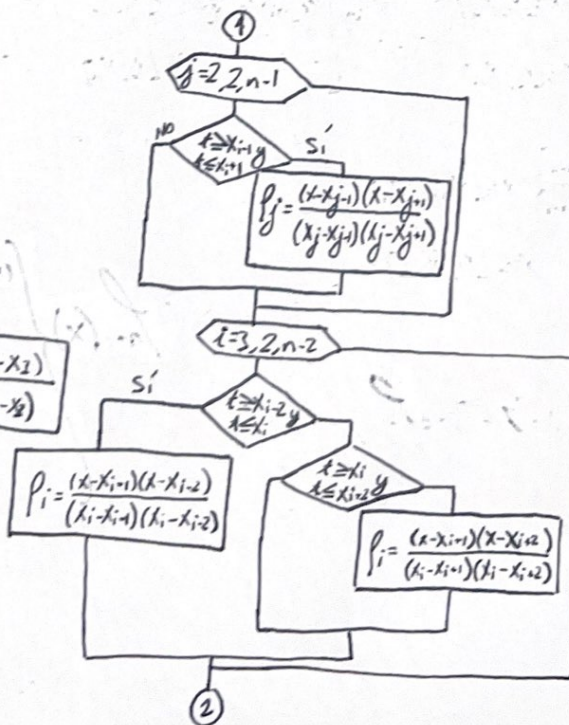 1
j=2,2,n-1
NO
t≥x_{i-1} y
t≤x_{i+1}
sí
ρ_j = (x-x_{j-1})(x-x_{j+1})
(x_j-x_{j-1})(x_j-x_{j+1})
i=3,2,n-2
-x_2)
-x_2)
sí
t≥x_{i-2} y
t≤x_i
t≥x_i y
t≤x_{i+2}
ρ_i = (x-x_{i-1})(x-x_{i-2})
(x_i-x_{i-1})(x_i-x_{i-2})
ρ_i = (x-x_{i+1})(x-x_{j+2})
(x_i-x_{i+1})(x_i-x_{i+2})
2